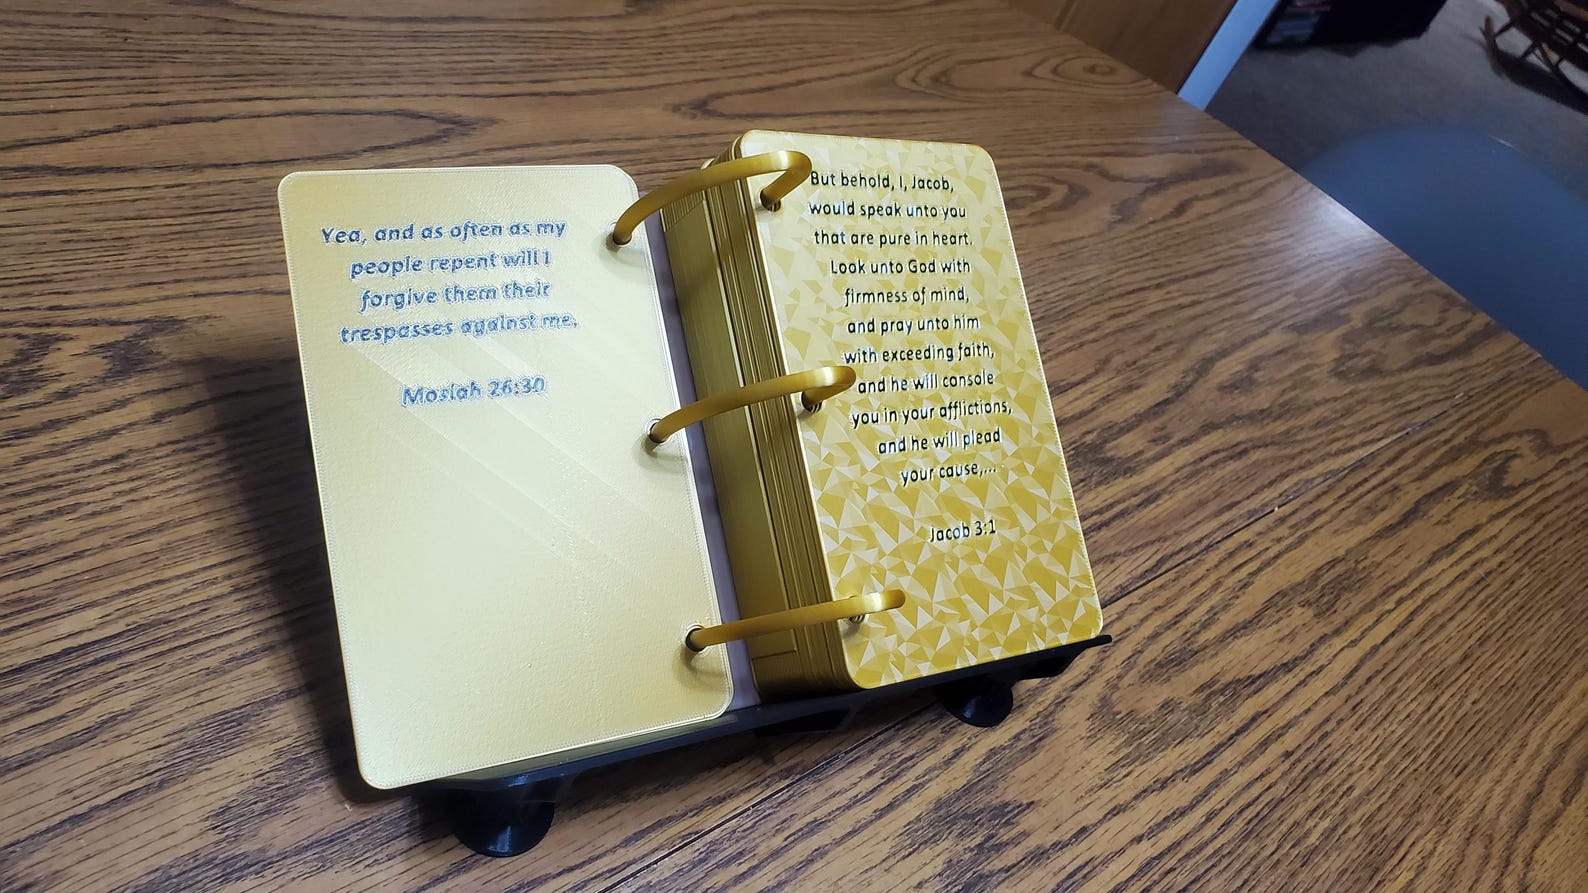 Yea, and as often as my
people repent will I
forgive them their
trespasses against me.
Mosiah 26:30
But behold, I, Jacob,
would speak unto you
that are pure in heart.
Look unto God with
firmness of mind,
and pray unto him
with exceeding faith,
and he will console
you in your afflictions,
and he will plead
your cause,...
Jacob 3:1